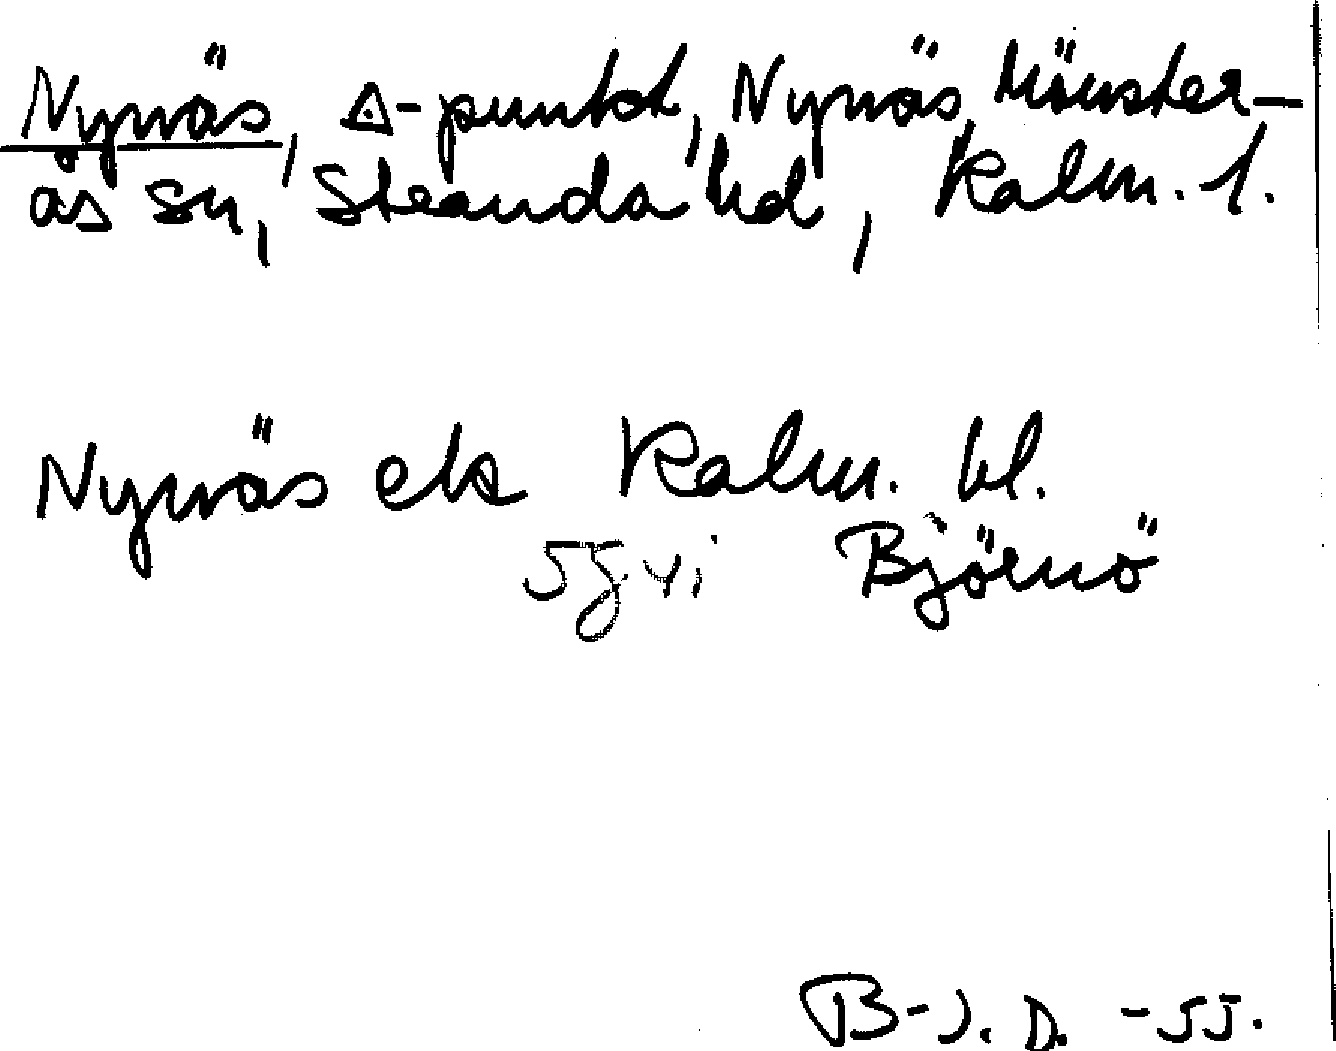 Nynäs, △-punkt, Nynäs, Mönster-
ås sn, Stranda hd, Kalm. l.
Nynäs ek Kalm. bl.
5g vi Björnö
B-J. D. -55.